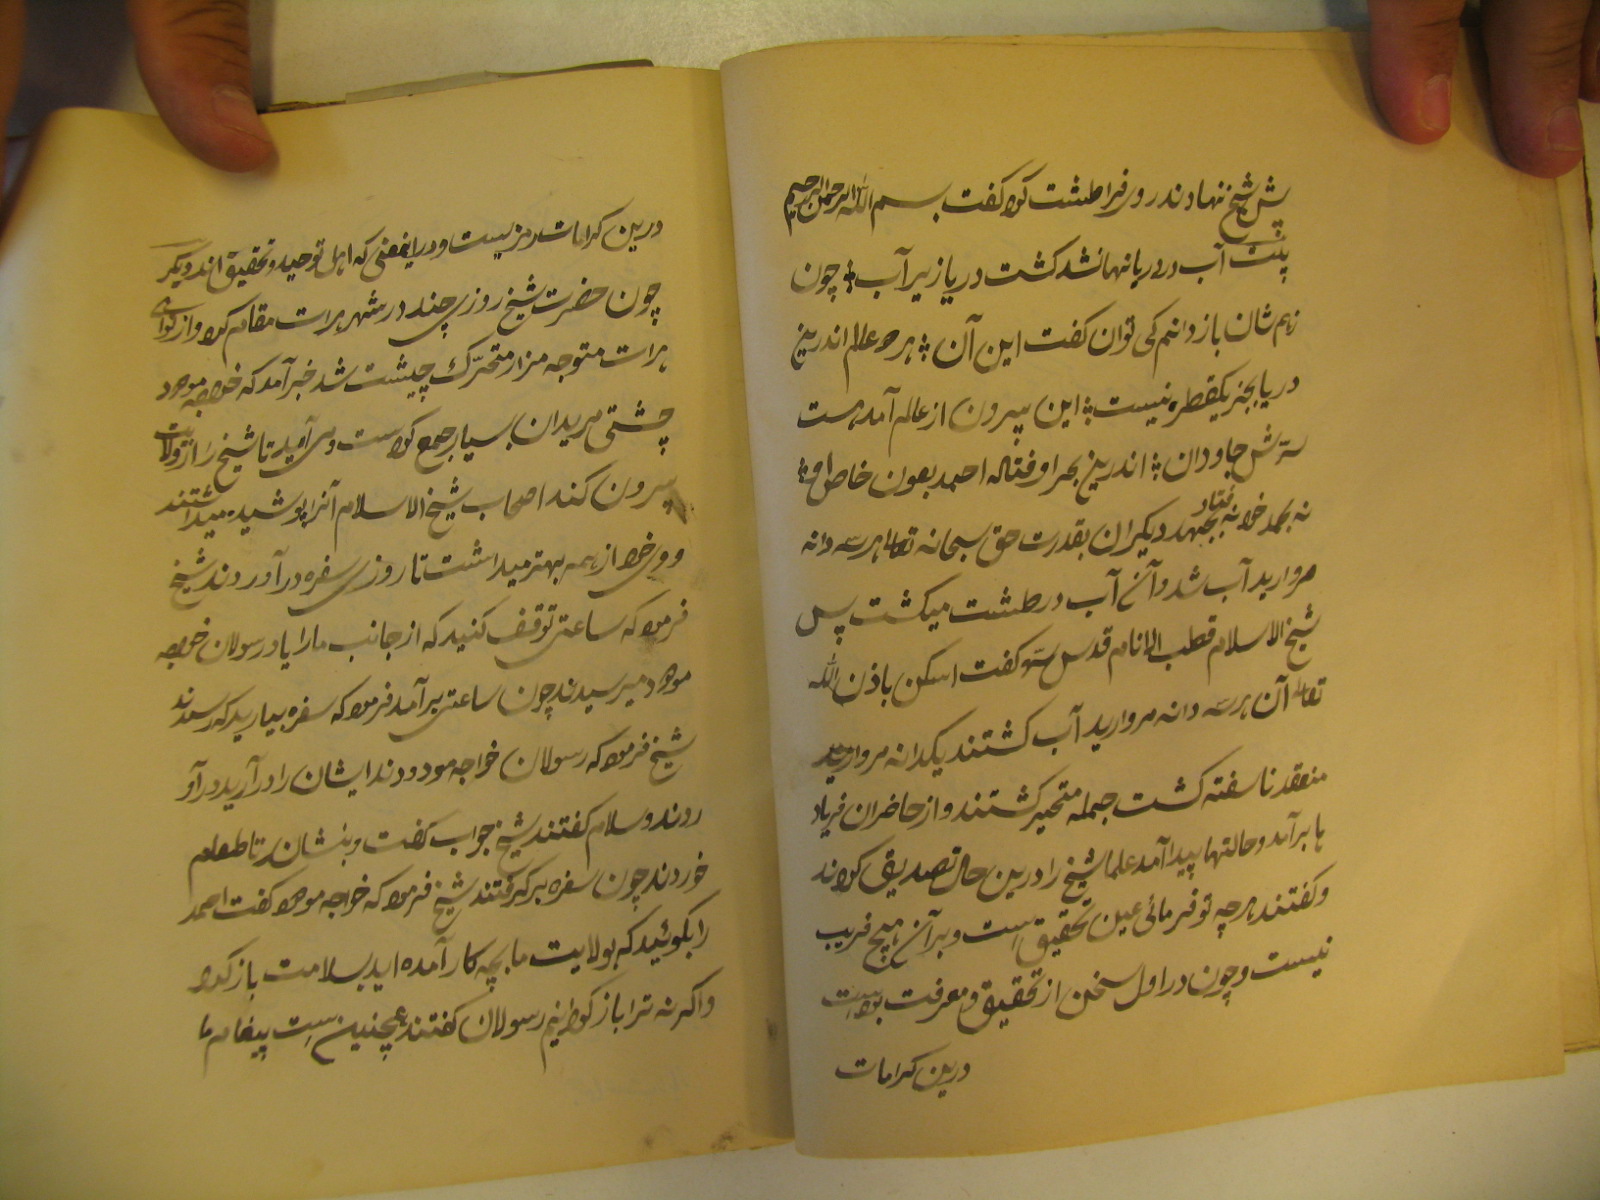 ش شیخ نهادند روی فرا طشت کرد و گفت بسم الله الرحمن الرحیم
آب دردریا نهان شد گشت دریا زیر آب چون
زهم شان باز دانم کی توان گفت این آن هر دو عالم اندرین
دریا بجز یکقطره نیست این بیرون از عالم آمد هست
جاودان اندرین بحر اوفتاده احمد بعون خاص
نه بجهد خود نه بجهد دیگران بقدرت حق سبحانه تعالی هر سه دانه
مروارید آب شد و آن آب در طشت میگشت پس
شیخ الاسلام قطب الانام قدس سره گفت اسکن باذن الله
تعالی آن هر سه دانه مروارید آب گشتند یکدانه مروارید
منعقد ناسفته گشت جمله متحیر گشتند و از حاضران فریاد
ها برآمد و حالتها پیدا آمد علما شیخ را درین حال تصدیق کردند
و گفتند هر چه تو فرمائی عین تحقیق است و بر آن هیچ فریب
نیست و چون در اول سخن از تحقیق و معرفت بوده است
درین کرامات
درین کرامات رمزیست و در اینمعنی که اهل توحید و تحقیق اند دیگر
چون حضرت شیخ روزی چند در شهر هرات مقام کرد و از
هرات متوجه مزار متحرک چیشت شد خبر آمد که خواجه مودود
چشتی مریدان بسیار جمع کرده است و می آید تا شیخ را از ولایت
بیرون کند اصحاب شیخ الاسلام آنرا پوشیده میداشتند
و وی خود از همه بهتر میدانست تا روزی سفره در آوردند شیخ
فرمود که ساعتی توقف کنید که از جانب ما را یاد رسولان خواجه
مودود میرسیدند چون ساعتی برآمد فرمود که سفره بیارید که رسیدند
شیخ فرمود که رسولان خواجه مودودند ایشان را در آرید در آو
ردند و سلام گفتند شیخ جواب گفت و بنشاندند تا طعام
خوردند چون سفره برگرفتند شیخ فرمود که خواجه مودود گفت احمد
را بگوئید که بولایت ما بچه کار آمده اید بسلامت باز گرد
و اگر نه ترا باز گردانیم رسولان گفتند همچنین ست پیغام ما